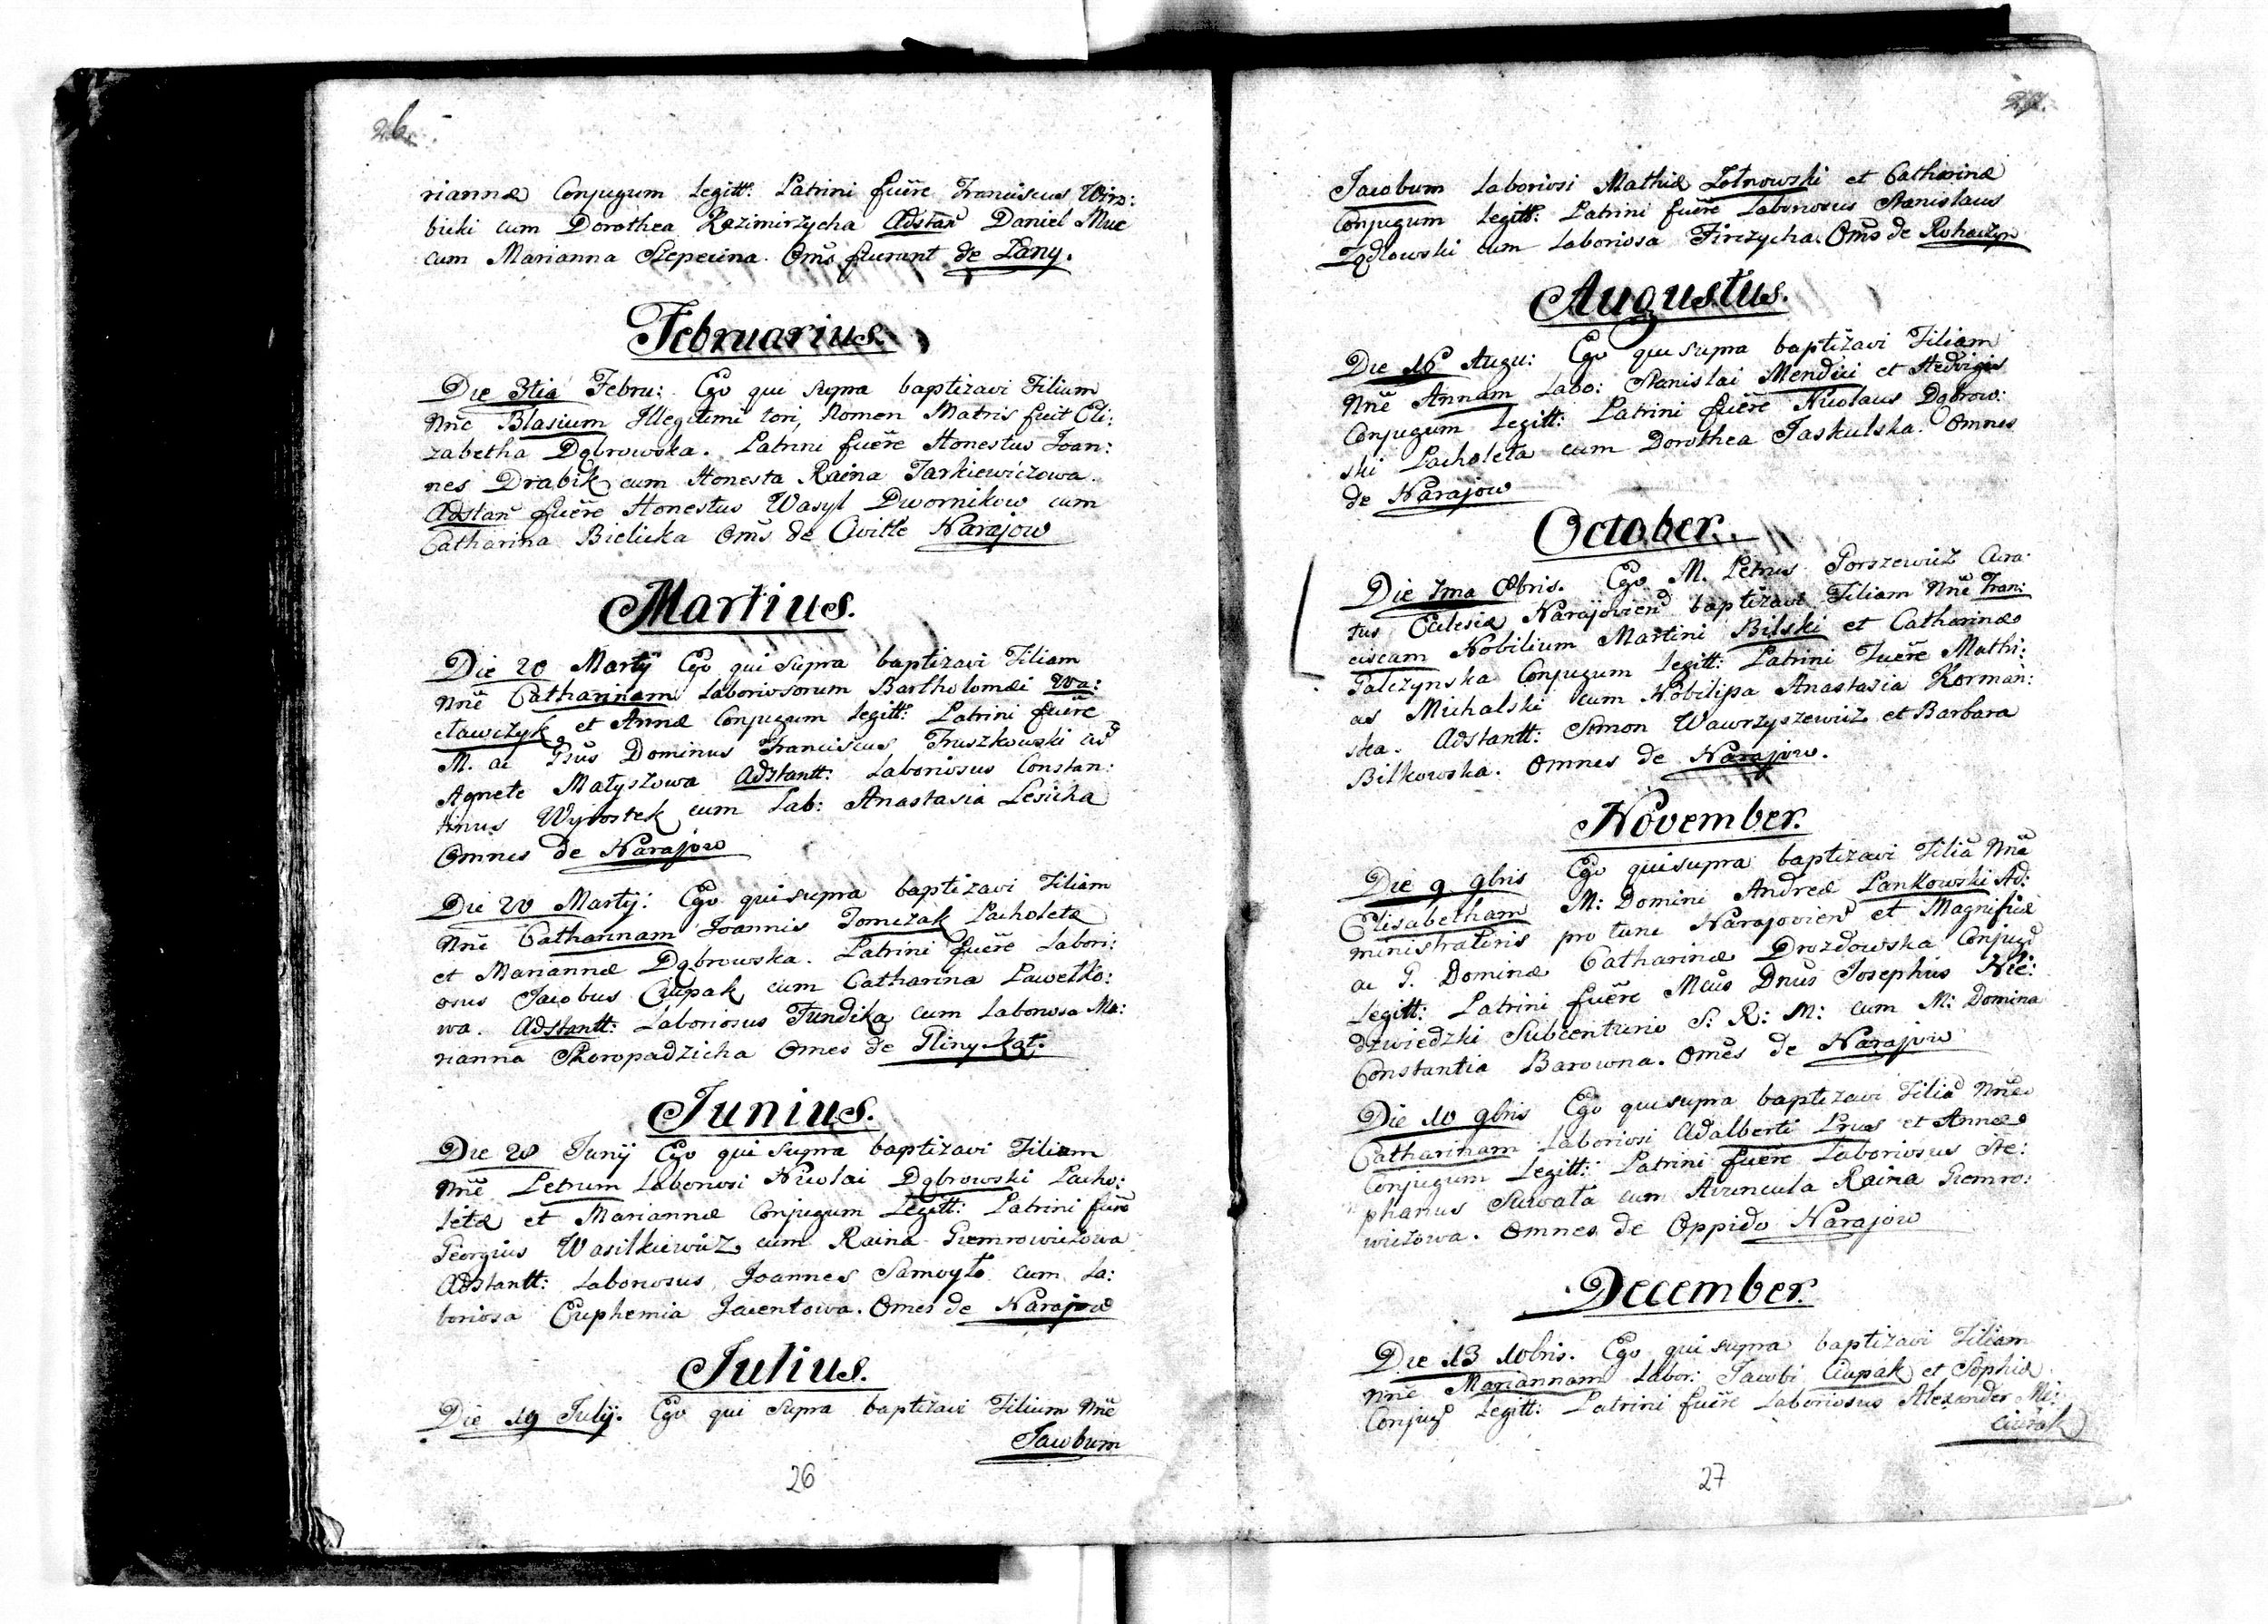 26.
riannæ Conjugum Legitt: Patrini fuere Franciscus Wirz:
bicki cum Dorothea Kazimirzycha Adstan Daniel Muc
cum Marianna Stepecina. Oms fuerunt de Łany.
Februarius.
Die 3tia Febru: Ego qui supra baptizavi Filium
Nne Blasium Illegitimi tori, Nomen Matris fuit Eli:
zabetha Dąbrowska. Patrini fuere Honestus Joan:
nes Drabik cum Honesta Raina Tarkiewiczowa.
Adstan fuere Honestus Wasyl Dwornikow cum
Catharina Bielicka Oms de Civitte Narajow
Martius.
Die 20 Martij Ego qui supra baptizavi Filiam
Nne Catharinam Laboriosorum Bartholomæi Wa:
cławczyk et Annæ Conjugum Legitt: Patrini fuere
M. ac Gsus Dominus Franciscus Truszkowski cu
Agnete Małyszowa Adstantt: Laboriosus Constan:
tinus Wyrostek cum Lab: Anastasia Lesicha
Omnes de Narajow
Die 20 Martij: Ego qui supra baptizavi Filiam
Nne Catharinam Joannis Tomczak Pacholeta
et Mariannæ Dąbrowska. Patrini fuere Labori:
osus Jacobus Ciupak cum Catharina Pawełko:
wa. Adstantt: Laboriosus Fundika cum Laboriosa Ma:
rianna Skoropadzicha Omes de Gliny Kąt.
Junius.
Die 28 Junij Ego qui supra baptizavi Filium
Nne Petrum Laboriosi Nicolai Dąbrowski Pacho:
letæ et Mariannæ Conjugum Legitt: Patrini fuere
Georgius Wasilkiewicz cum Raina Gremrowiczowa
Adstantt: Laboriosus Joannes Samoyło cum La:
boriosa Euphemia Jacentowa. Omes de Narajow
Julius.
Die 19 Julij. Ego qui supra baptizavi Filium Nne
Jacobum
26
27.
Jacobum Laboriosi Mathiæ Zotnowski et Catharinæ
Conjugum Legitt: Patrini fuere Laboriosus Stanislaus
Żądłowski cum Laboriosa Firczycha. Oms de Rohaczyn
Augustus.
Die 16 Augu: Ego qui supra baptizavi Filiam
Nne Annam Labo: Stanislai Mendici et Hedvigis
Conjugum Legitt: Patrini fuere Nicolaus Dąbrow:
ski Pacholeta cum Dorothea Jaskulska. Omnes
de Narajow
October.
Die 7ma 8bris. Ego M. Petrus Gorszewicz Cura:
tus Ecclesiæ Narajovien baptizavi Filiam Nne Fran:
ciscam Nobilium Martini Bilski et Catharinæ
Gałczynska Conjugum Legitt: Patrini Fuere Mathi:
as Michalski cum Nobilissa Anastasia Korman:
ska. Adstantt: Simon Wawrzyszewicz et Barbara
Bilkowska. Omnes de Narajow.
November.
Die 9 9bris Ego qui supra baptizavi Filia Nne
Elisabetham M: Domini Andreæ Pankowski Ad:
ministratoris pro tunc Narajovien et Magnificæ
ac G. Dominæ Catharinæ Drozdowska Conjug
Legitt: Patrini fuere Mcus Dnus Josephus Nie:
dzwiedzki Subcenturio S: R: M: cum M: Domina
Constantia Barowna. Omes de Narajow
Die 10 9bris Ego qui supra baptizavi Filia Nne
Catharinam Laboriosi Adalberti Prus et Annæ
Conjugum Legitt: Patrini fuere Laboriosus Ste:
phanus Suwała cum Avuncula Raina Gremro:
wiczowa. Omnes de Oppido Narajow
December.
Die 13 10bris. Ego qui supra baptizavi Filiam
Nne Mariannam Labor: Jacobi Ciupak et Sophiæ
Conjug Legitt: Patrini fuere Laboriosus Alexander Mi:
27